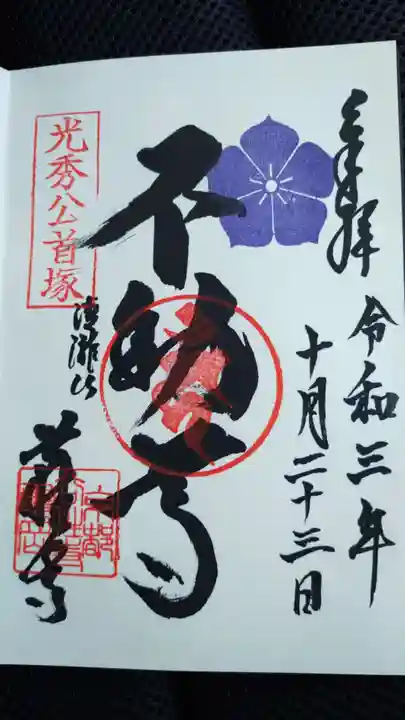 奉拝
令和三年
十月二十三日
不動尊
光秀公首塚
清瀧山
谷性寺